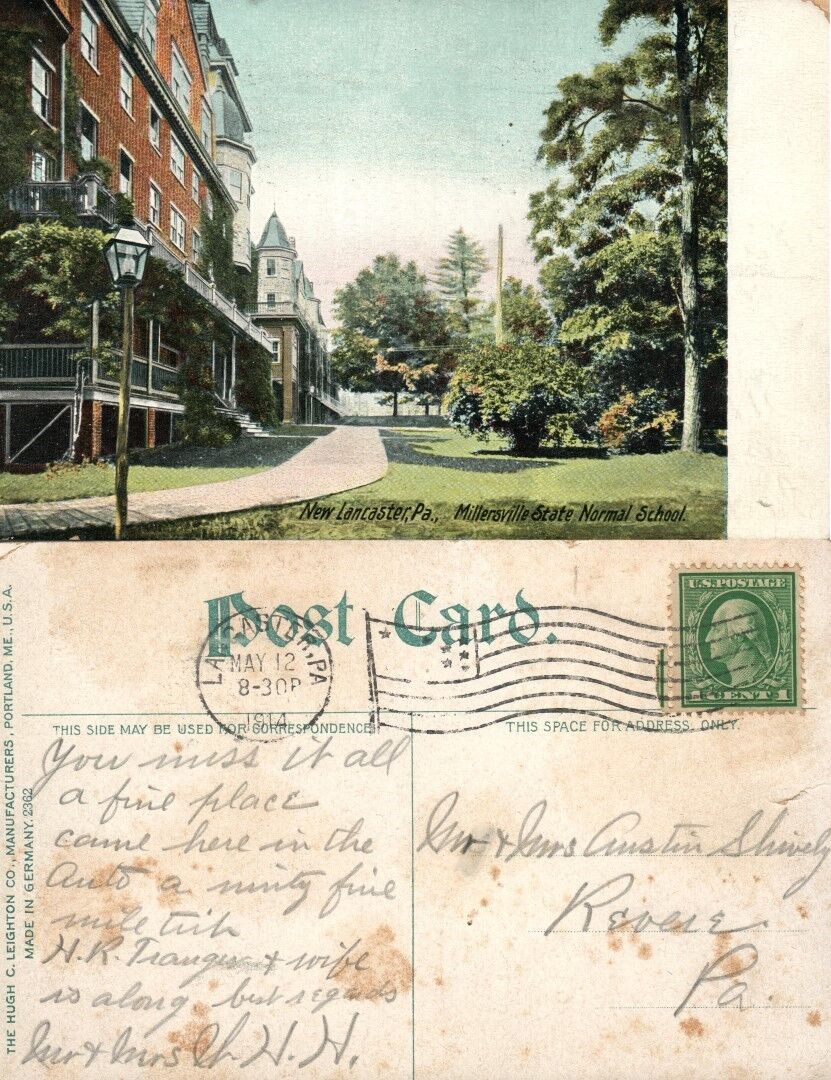 New Lancaster, Pa., Millersville State Normal School.
Post Card.
LANCASTER, PA
MAY 12
8-30P
1914
U.S. POSTAGE
1 CENT 1
THIS SIDE MAY BE USED FOR CORRESPONDENCE
THIS SPACE FOR ADDRESS ONLY.
THE HUGH C. LEIGHTON CO., MANUFACTURERS, PORTLAND, ME., U.S.A.
MADE IN GERMANY. 2362
You miss it all
a fine place
came here in the
Auto a ninty five
mile trip
H.K. & wife
is along best regards
Mr & Mrs H. H.
Mr & Mrs Austin Shively
Revere
Pa.